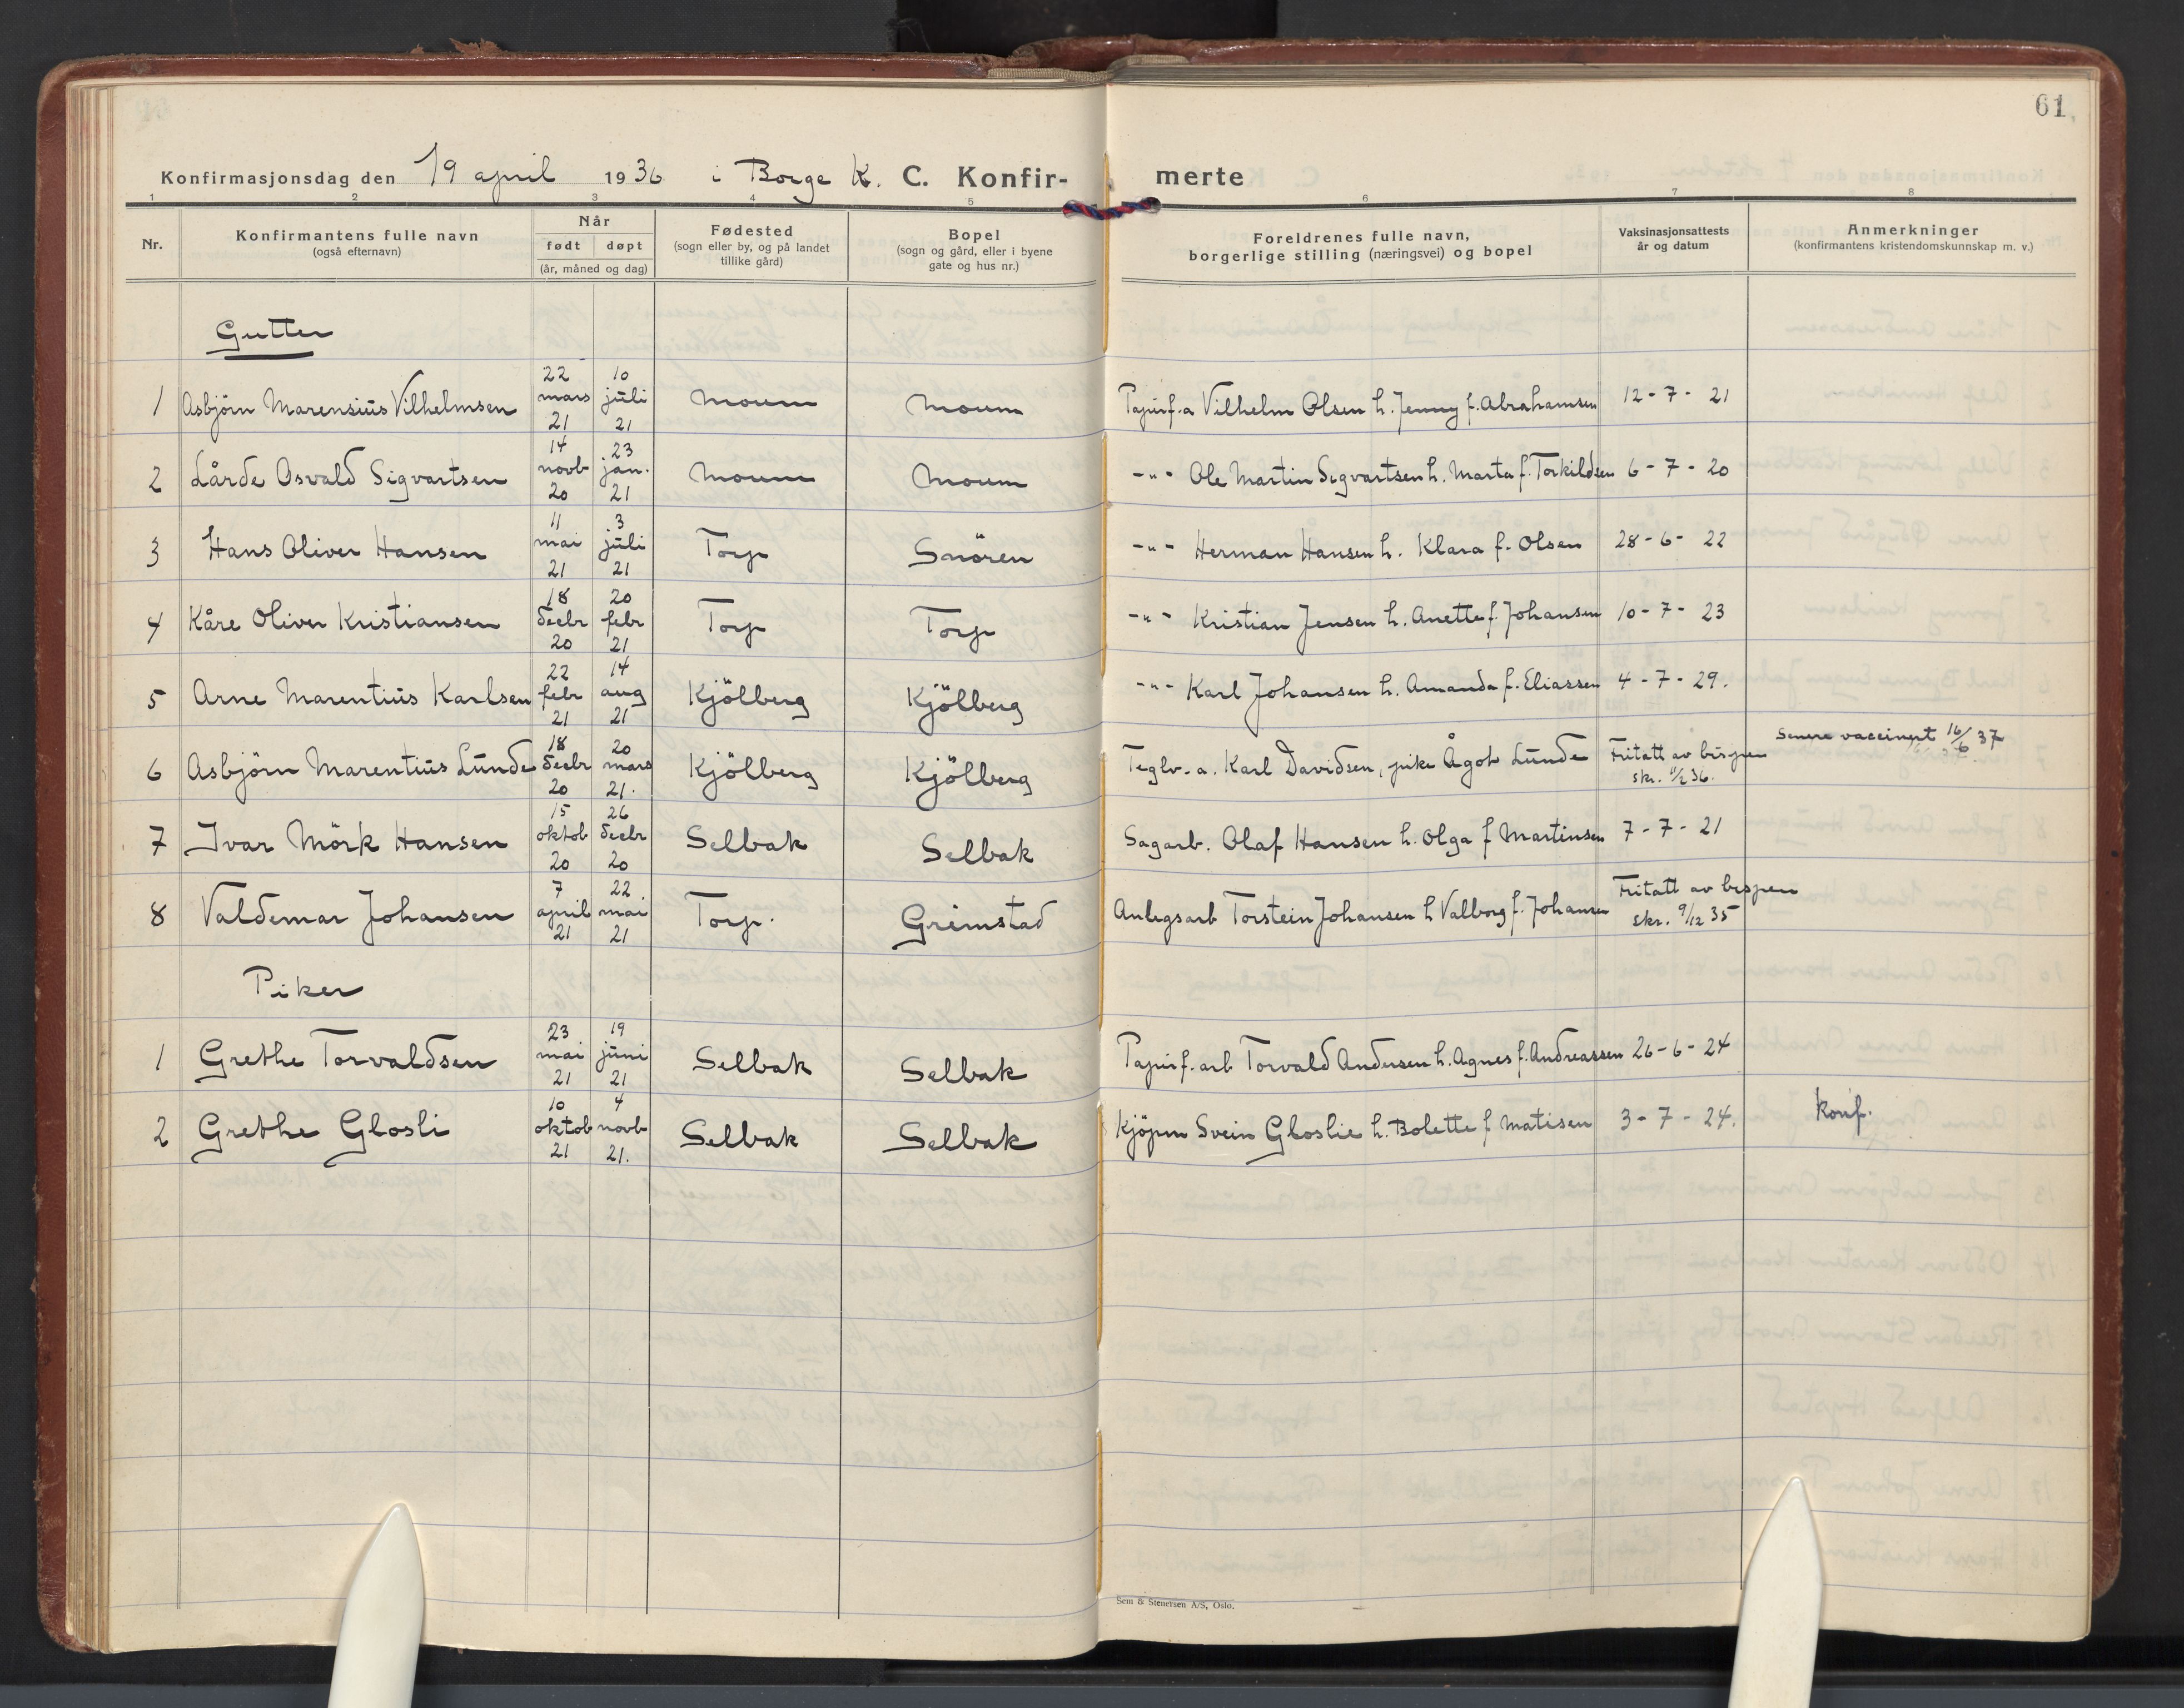 61
Konfirmasjonsdag den 19 april 1936 i Borge K. C. Konfirmerte
1 2 3 4 5 6 7 8
Nr. Konfirmantens fulle navn (også efternavn) Når født døpt (år, måned og dag) Fødested (sogn eller by, og på landet tillike gård) Bopel (sogn og gård, eller i byene gate og hus nr.) Foreldrenes fulle navn, borgerlige stilling (næringsvei) og bopel Vaksinasjonsattests år og datum Anmerkninger (konfirmantens kristendomskunnskap m. v.)
Gutter
1 Asbjörn Marensius Vilhelmsen 22 mars 21 10 juli 21 Moum Moum Papirf.a Vilhelm Olsen h. Jenny f. Abrahamsen 12-7-21
2 Lårde Osvald Sigvartsen 14 novb 20 23 jan. 21 Moum Moum -"- Ole Martin Sigvartsen h. Marta f. Torkildsen 6-7-20
3 Hans Oliver Hansen 11 mai 21 3 juli 21 Torp Snören -"- Herman Hansen h. Klara f. Olsen 28-6-22
4 Kåre Oliver Kristiansen 18 decbr 20 20 febr 21 Torp Torp -"- Kristian Jensen h. Anette f. Johansen 10-7-23
5 Arne Marentius Karlsen 22 febr 21 14 aug 21 Kjölberg Kjölberg -"- Karl Johansen h. Amanda f. Eliassen 4-7-29.
6 Asbjörn Marentius Lunde 18 decbr 20 20 mars 21. Kjölberg Kjölberg Teglv. a. Karl Davidsen, pike Ågot Lunde Fritatt av bispen skr. 11/2 36. Senere vaccinert 16/6 37
7 Ivar Mörk Hansen 15 oktob 20 26 decbr 20 Selbak Selbak Sagarb. Olaf Hansen h. Olga f Martinsen 7-7-21
8 Valdemar Johansen 7 april 21 22 mai 21 Torp. Grimstad Anlegsarb Torstein Johansen h Valborg f. Johansen Fritatt av bispen skr. 9/12 35
Piker
1 Grethe Torvaldsen 23 mai 21 19 juni 21 Selbak Selbak Papirf.arb Torvald Andersen h. Agnes f. Andreassen 26-6-24
2 Grethe Glosli 10 oktob 21 4 novb 21. Selbak Selbak Kjöpm Svein Gloslie h. Bolette f Matisen 3-7-24. Konf.
Sem & Stenersen A/S, Oslo.